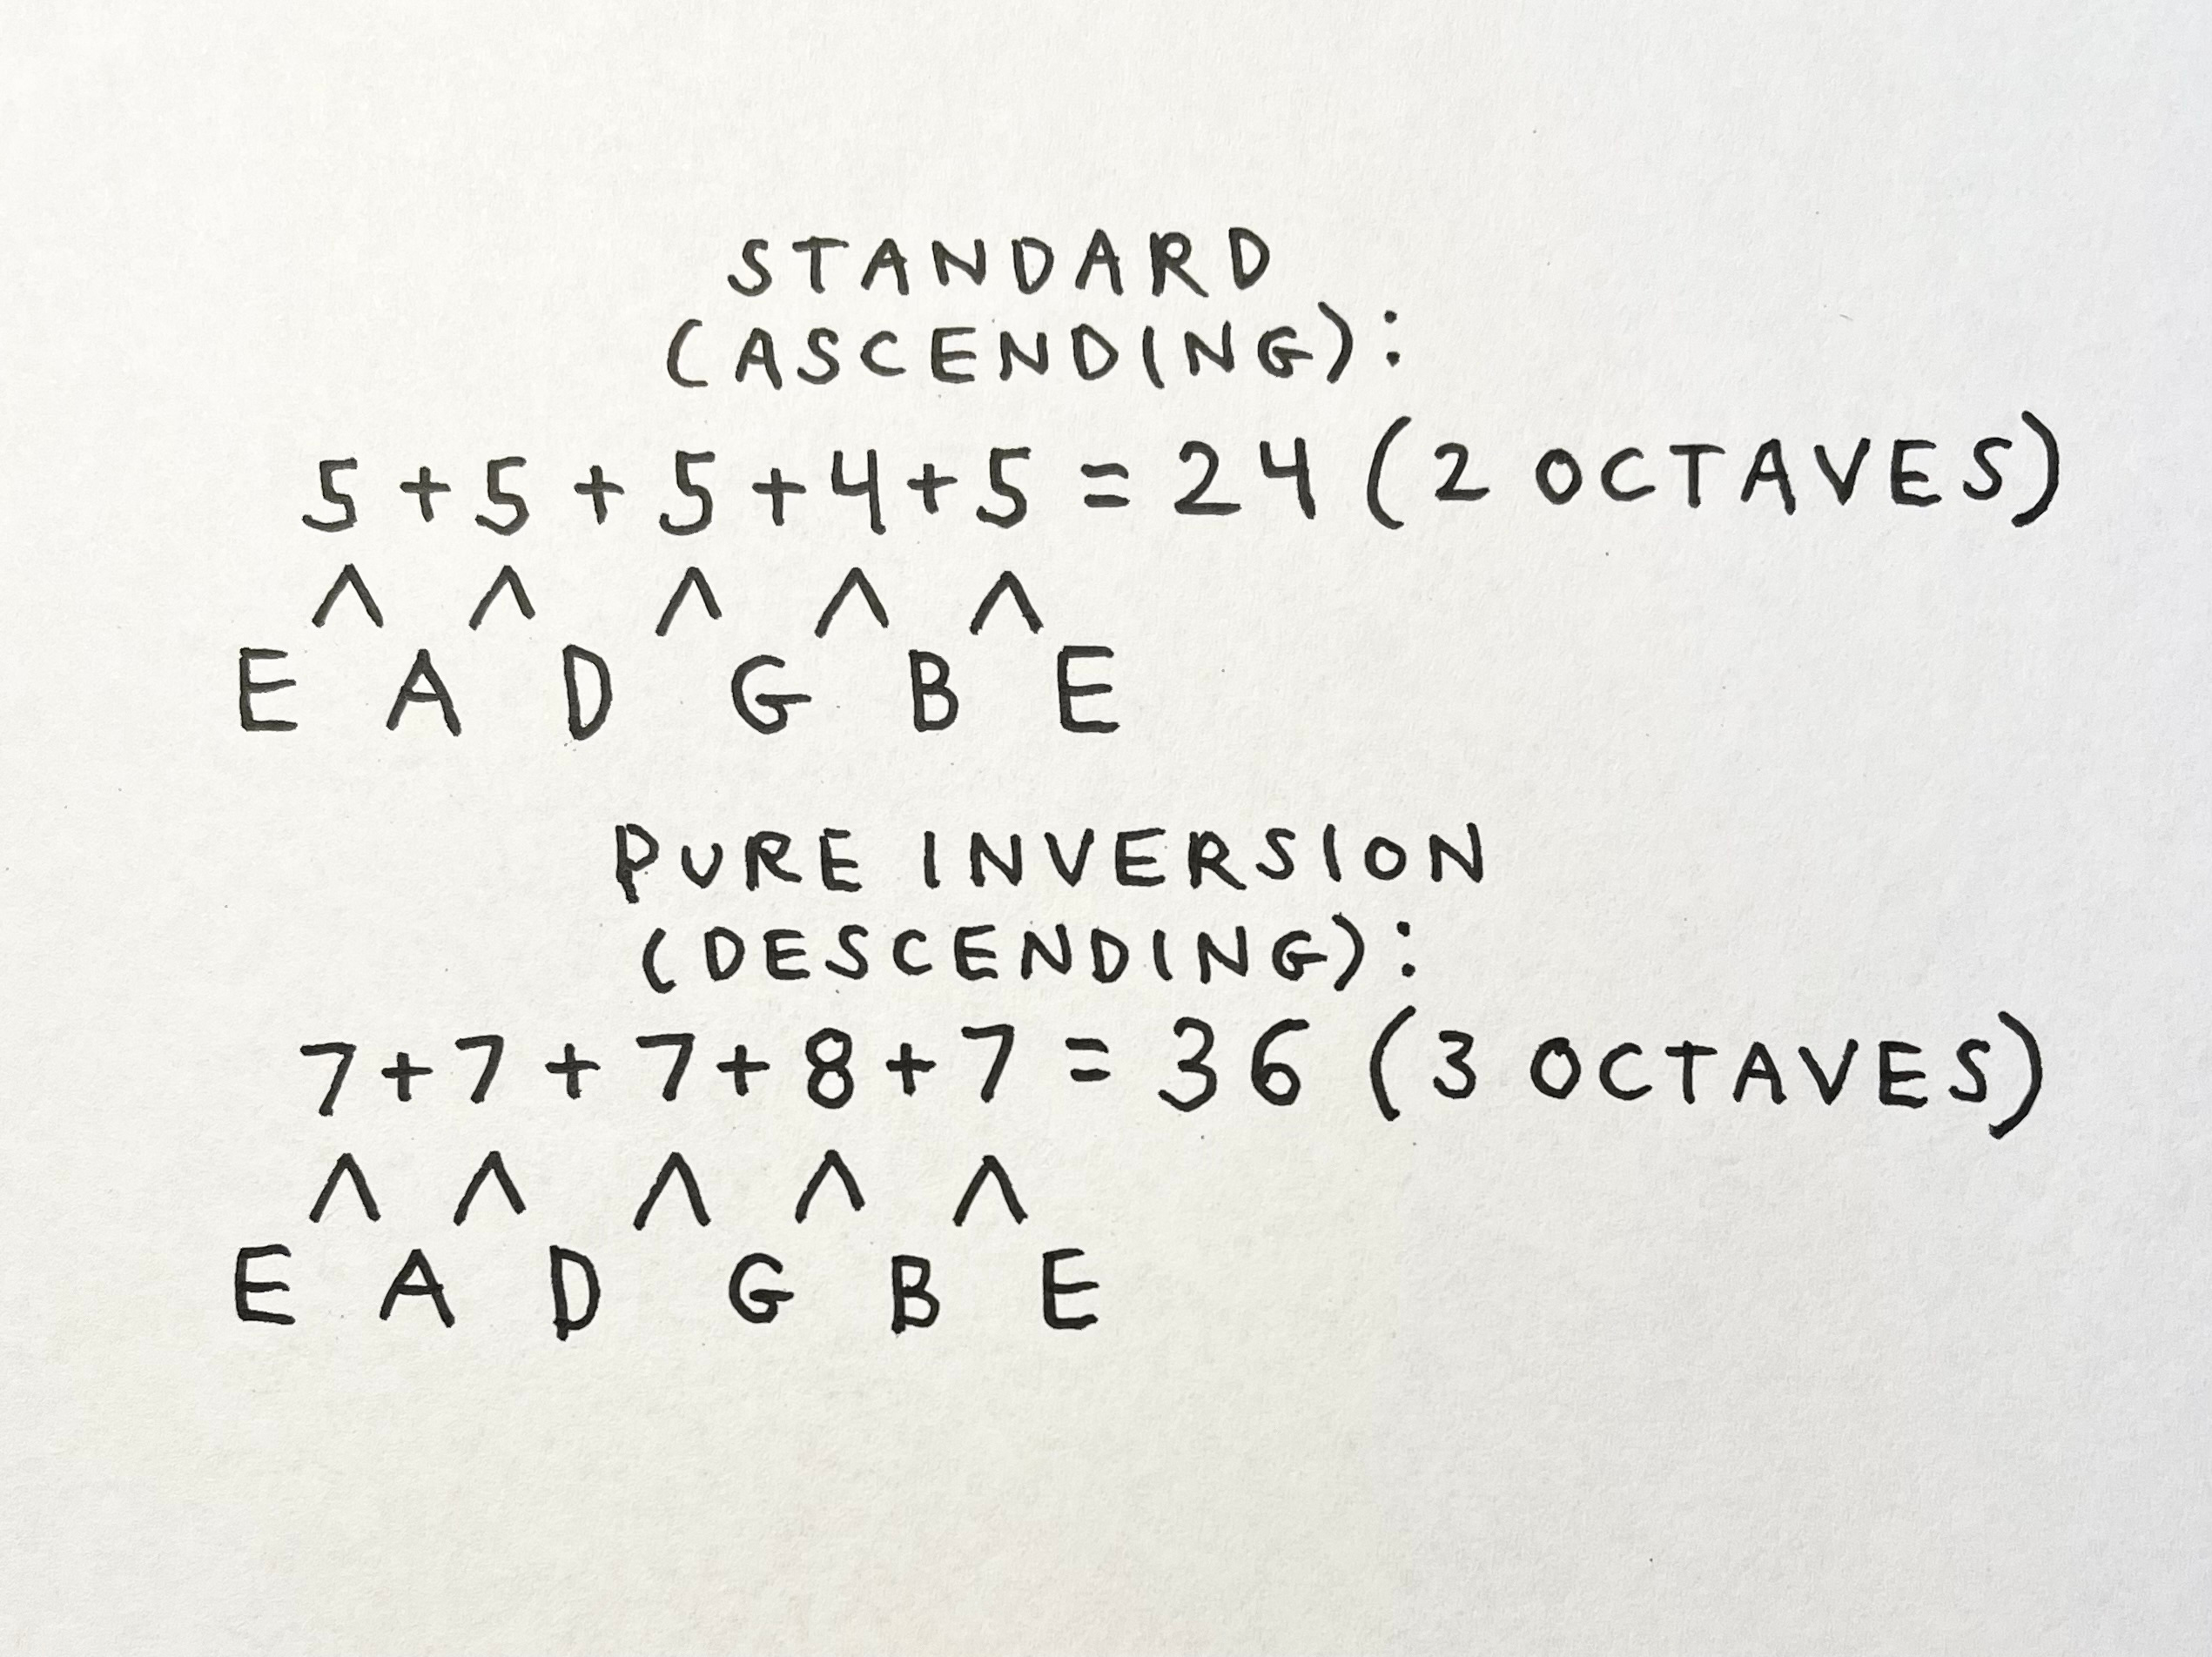 STANDARD
(ASCENDING):
5+5+5+4+5=24 (2 OCTAVES)
^ ^ ^ ^ ^
E A D G B E
PURE INVERSION
(DESCENDING):
7+7+7+8+7=36 (3 OCTAVES)
^ ^ ^ ^ ^
E A D G B E